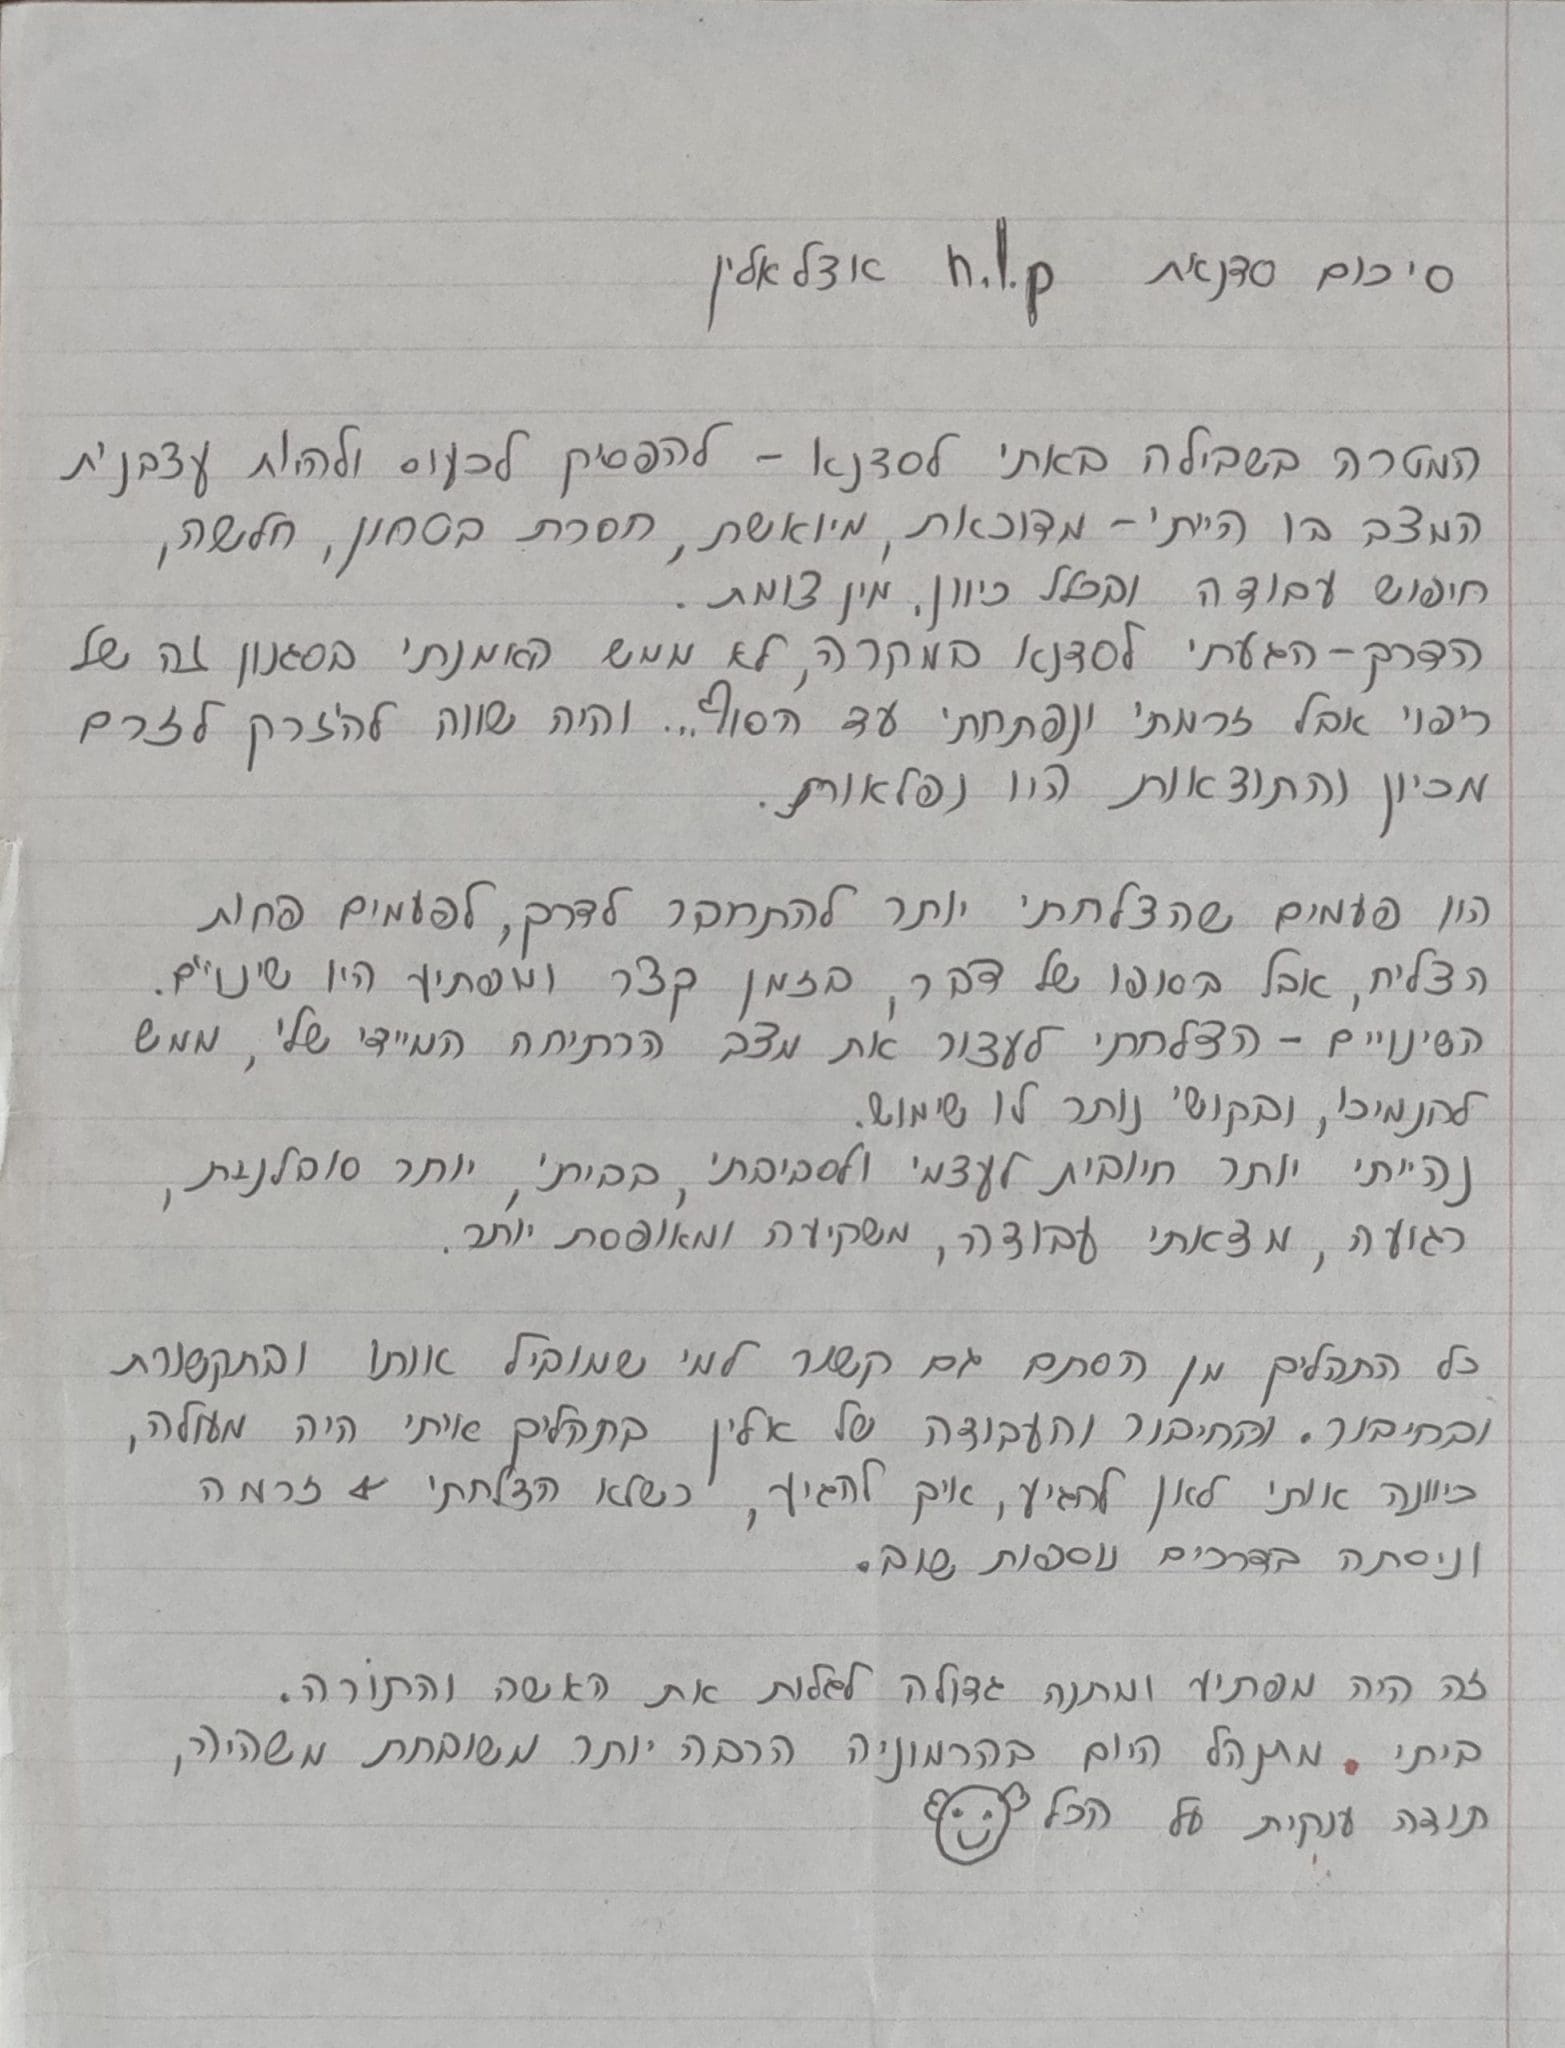 סיכום סדנאת n.l.p אצל אלין
המטרה בשבילה באתי לסדנא - להפסיק לכעוס ולהיות עצבנית
המצב בו הייתי - מדוכאת, מיואשת, חסרת בטחון, חלשה,
חיפוש עבודה ובכלל כיוון, מין צומת.
הדרך - הגעתי לסדנא במקרה, לא ממש האמנתי בסגנון זה של
ריפוי אבל זרמתי ונפתחתי עד הסוף... והיה שווה להיזרק לזרם
מכיון והתוצאות היו נפלאות.
היו פעמים שהצלחתי יותר להתחבר לדרך, לפעמים פחות
הצליח, אבל בסופו של דבר, בזמן קצר ומפתיע היו שינויים.
השינויים - הצלחתי לעצור את מצב הרתיחה המיידי שלי, ממש
להנמיכו, ובקושי נותר לו שימוש.
נהייתי יותר חיובית לעצמי ולסביבתי, בביתי, יותר סובלנית,
רגועה, מצאתי עבודה, משקיעה ומאופסת יותר.
כל התהליך מן הסתם גם קשור למי שמוביל אותו ובתקשורת
ובחיבור. והחיבור והעבודה של אלין בתהליך איתי היה מעולה,
כיוונה אותי לאן להגיע, איך להגיע, כשלא הצלחתי זרמה
וניסתה בדרכים נוספות שוב.
זה היה מפתיע ומתנה גדולה לגלות את האשה והתורה.
ביתי מתנהל היום בהרמוניה הרבה יותר משובחת משהיה,
תודה ענקית על הכל